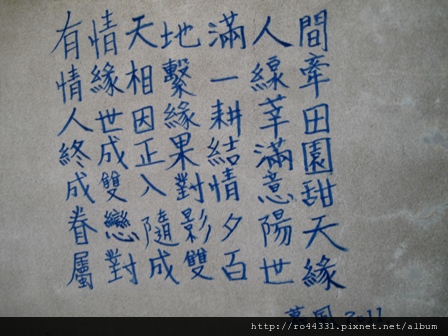 有情天地滿人間
情緣相繫一線牽
人世因緣耕莘田
終成正果結滿園
成雙入對情意甜
眷戀隨影夕陽天
屬對成雙百世緣
http://ro44331.pixnet.net/album